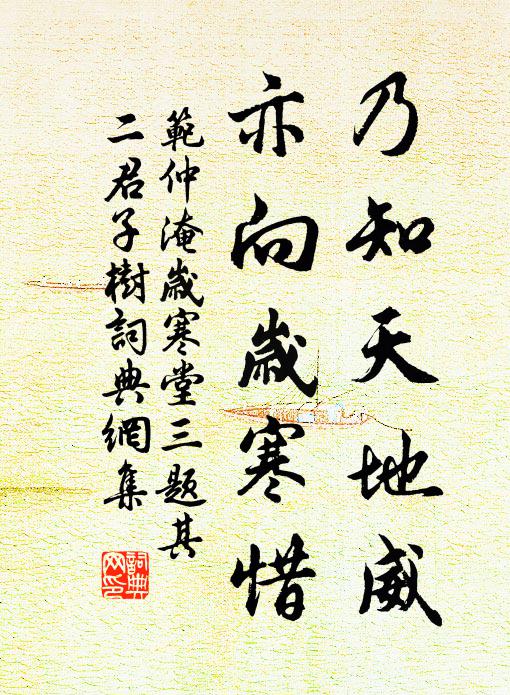 乃知天地威
亦向歲寒惜
範仲淹歲寒堂三題其
二君子樹詞典網集
詞典
网印